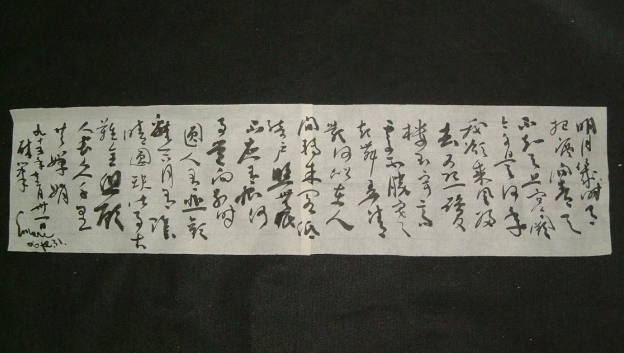 明月幾時有
把酒問青天
不知天上宮闕
今夕是何年
我欲乘風歸
去又恐瓊
樓玉宇高
處不勝寒
起舞弄清
影何似在人
間轉朱閣低
綺戶照無眠
不應有恨何
事長向別時
圓人有悲歡
離合月有陰
晴圓缺此事古
難全但願
人長久千里
共嬋娟
醉筆